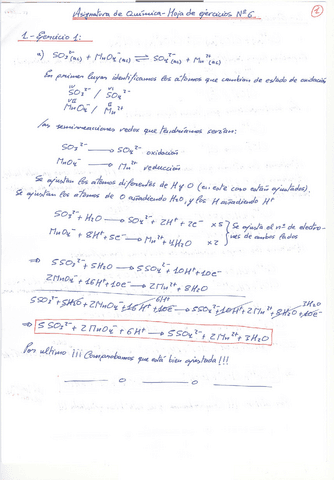 Asignatura de Química - Hoja de ejercicios Nº 6.
1
1.- Ejercicio 1:
a) SO₃²⁻(ac) + MnO₄⁻(ac) ⇌ SO₄²⁻(ac) + Mn²⁺(ac)
En primer lugar identificamos los átomos que cambian de estado de oxidación
IV VI
SO₃²⁻ / SO₄²⁻
VII II
MnO₄⁻ / Mn²⁺
Las semirreacciones redox que tendríamos serían:
SO₃²⁻ → SO₄²⁻ oxidación
MnO₄⁻ → Mn²⁺ reducción
Se ajustan los átomos diferentes de H y O (en este caso están ajustados).
Se ajustan los átomos de O añadiendo H₂O, y los H añadiendo H⁺
SO₃²⁻ + H₂O → SO₄²⁻ + 2H⁺ + 2e⁻ x5 } Se ajusta el nº de electro-
MnO₄⁻ + 8H⁺ + 5e⁻ → Mn²⁺ + 4H₂O x2 } nes de ambos lados
⇒ 5SO₃²⁻ + 5H₂O → 5SO₄²⁻ + 10H⁺ + 10e⁻
2MnO₄⁻ + 16H⁺ + 10e⁻ → 2Mn²⁺ + 8H₂O
6H⁺ 3H₂O
5SO₃²⁻ + 5H₂O + 2MnO₄⁻ + 16H⁺ + 10e⁻ → 5SO₄²⁻ + 10H⁺ + 2Mn²⁺ + 8H₂O + 10e⁻
⇒ 5SO₃²⁻ + 2MnO₄⁻ + 6H⁺ → 5SO₄²⁻ + 2Mn²⁺ + 3H₂O
Por último ¡¡¡ Comprobamos que está bien ajustada!!!